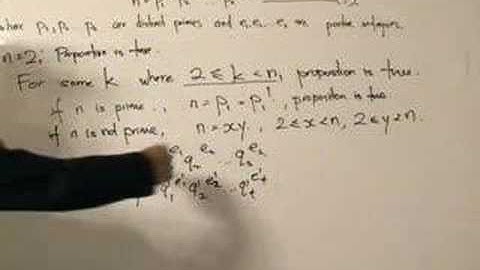 where p₁, p₂ are distinct primes and e₁, e₂ are positive integers.
n=2; Proposition is true.
For some k where 2 ≤ k < n, proposition is true.
if n is prime, n = p₁ = p₁¹, proposition is true
if n is not prime, n = xy, 2 ≤ x < n, 2 ≤ y < n.
q₂^e₂ ...
q'₁^e'₁ q'₂^e'₂ ...